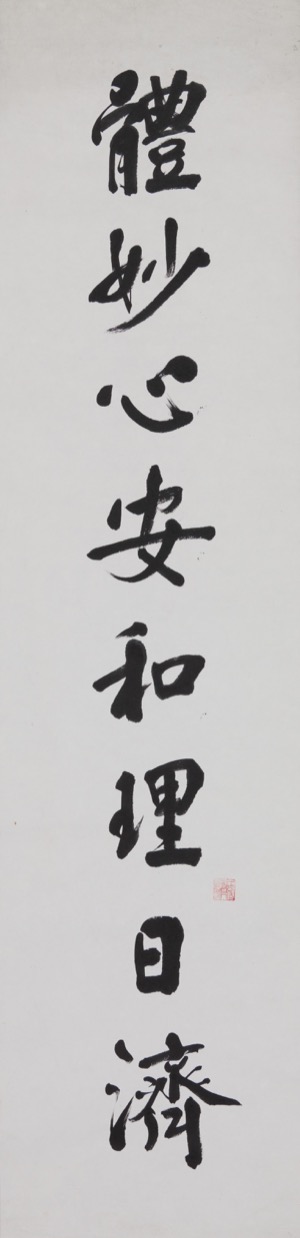 體妙心安和理日濟